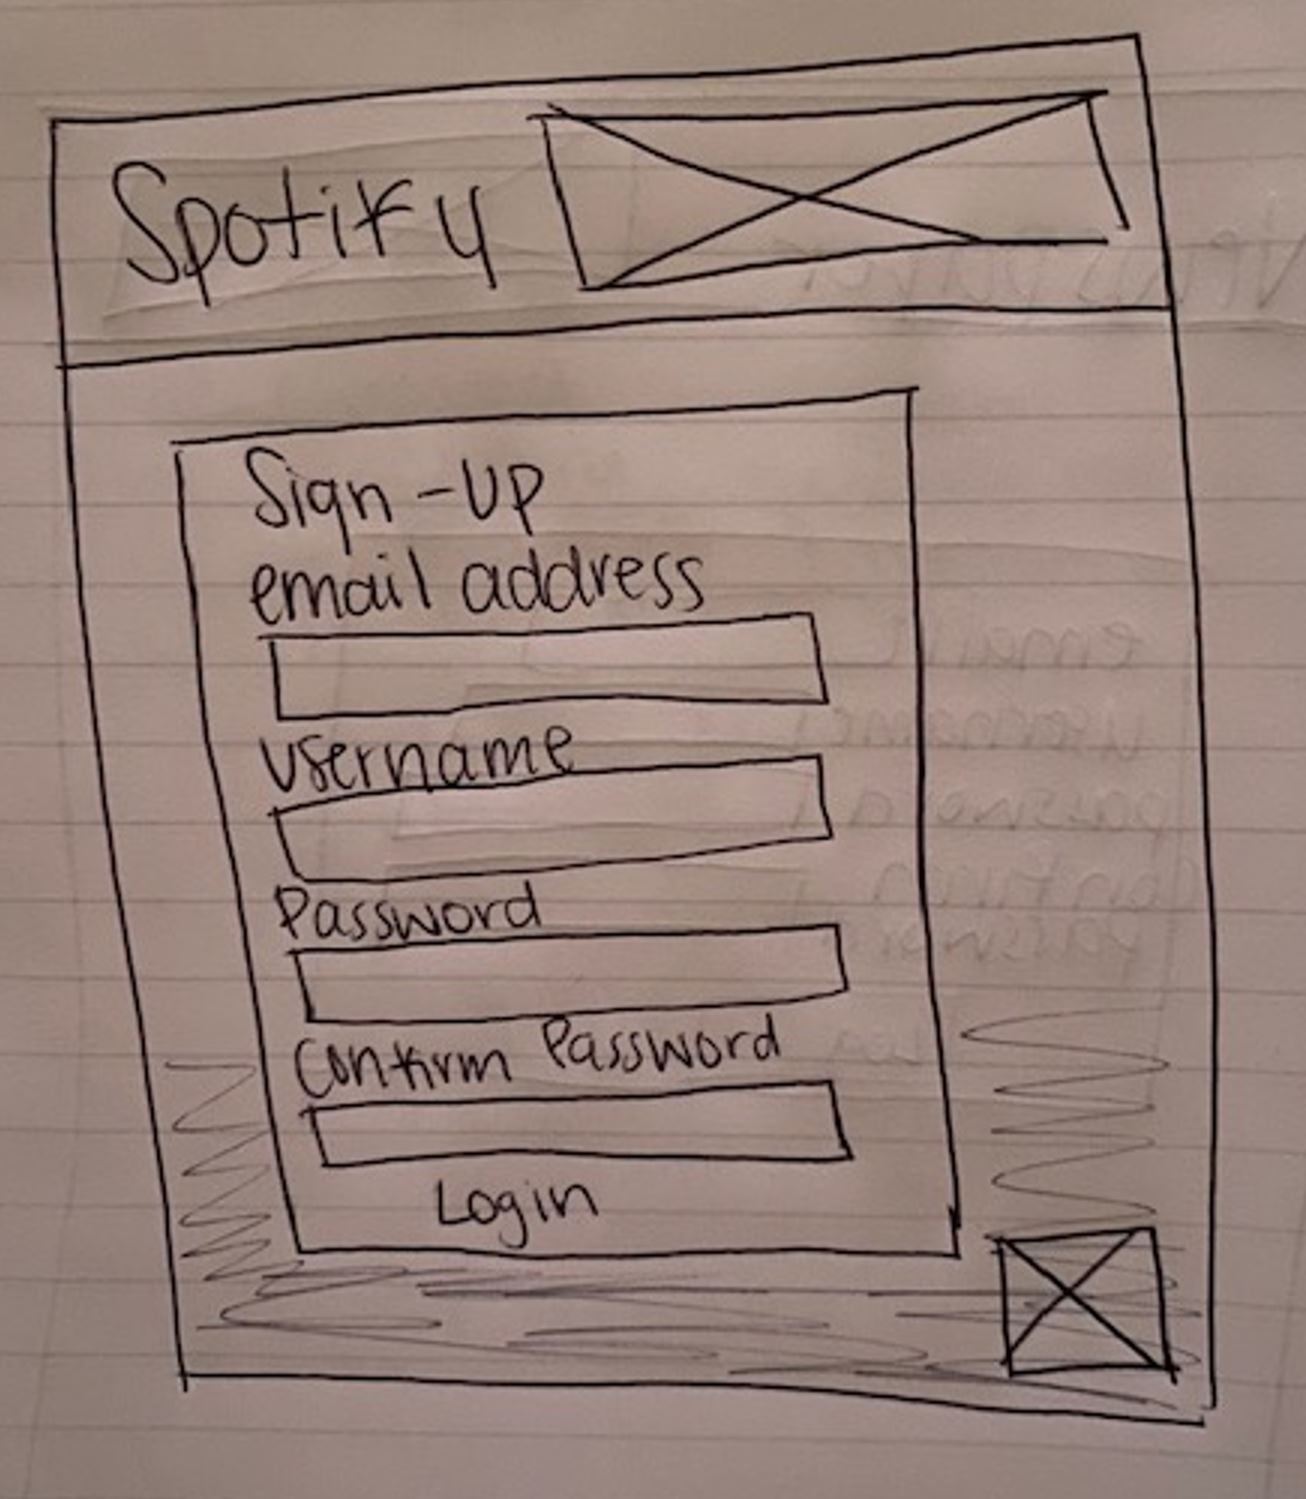 Spotify
Sign-up
email address
username
Password
Confirm Password
Login